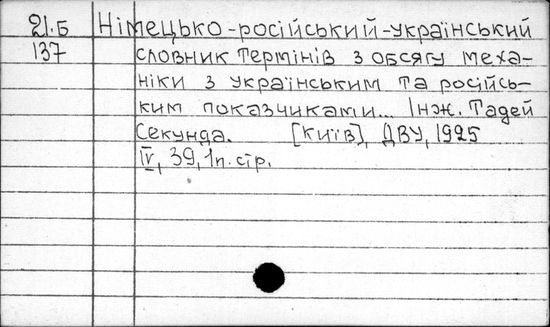 21.Б Німецько-російський-український
137 словник термінів з обсягу меха-
ніки з українським та російсь-
ким показчиками... Інж. Тадей
Секунда. [Київ], ДВУ, 1925
IV, 39, 1п. стр.